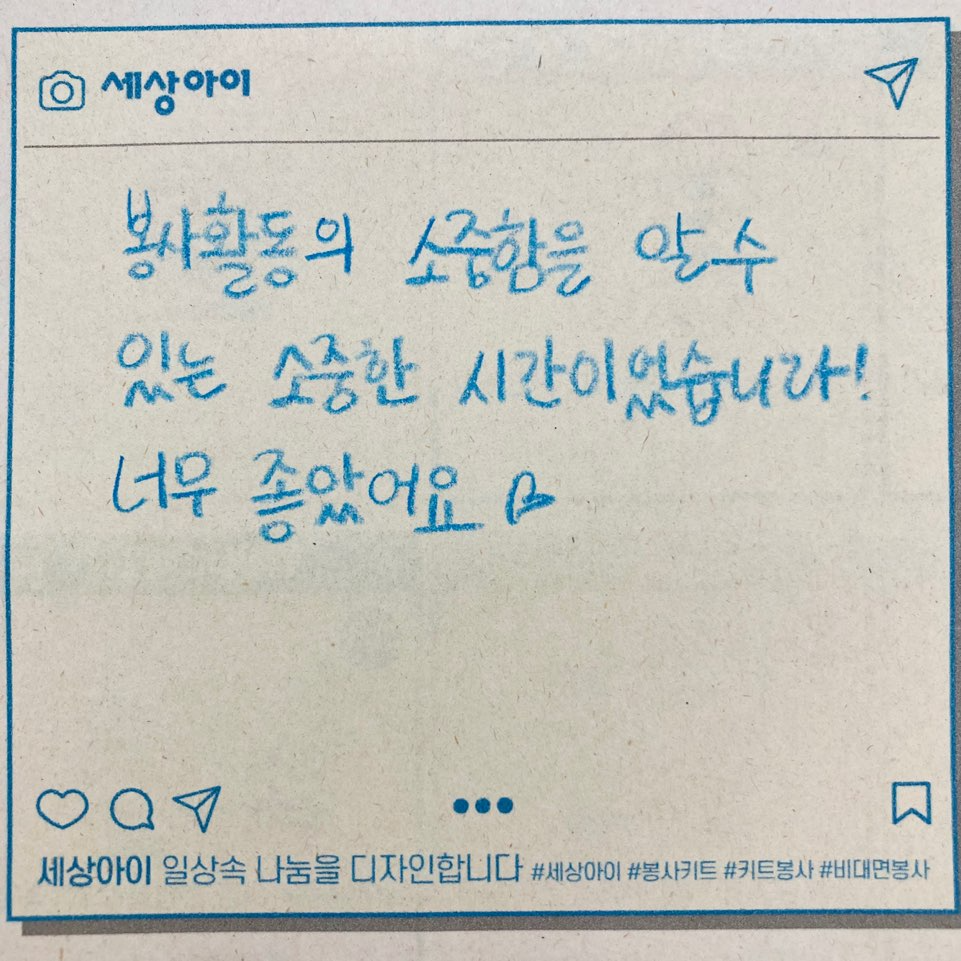 세상아이
봉사활동의 소중함을 알 수
있는 소중한 시간이었습니다!
너무 좋았어요
세상아이 일상속 나눔을 디자인합니다 #세상아이 #봉사키트 #키트봉사 #비대면봉사